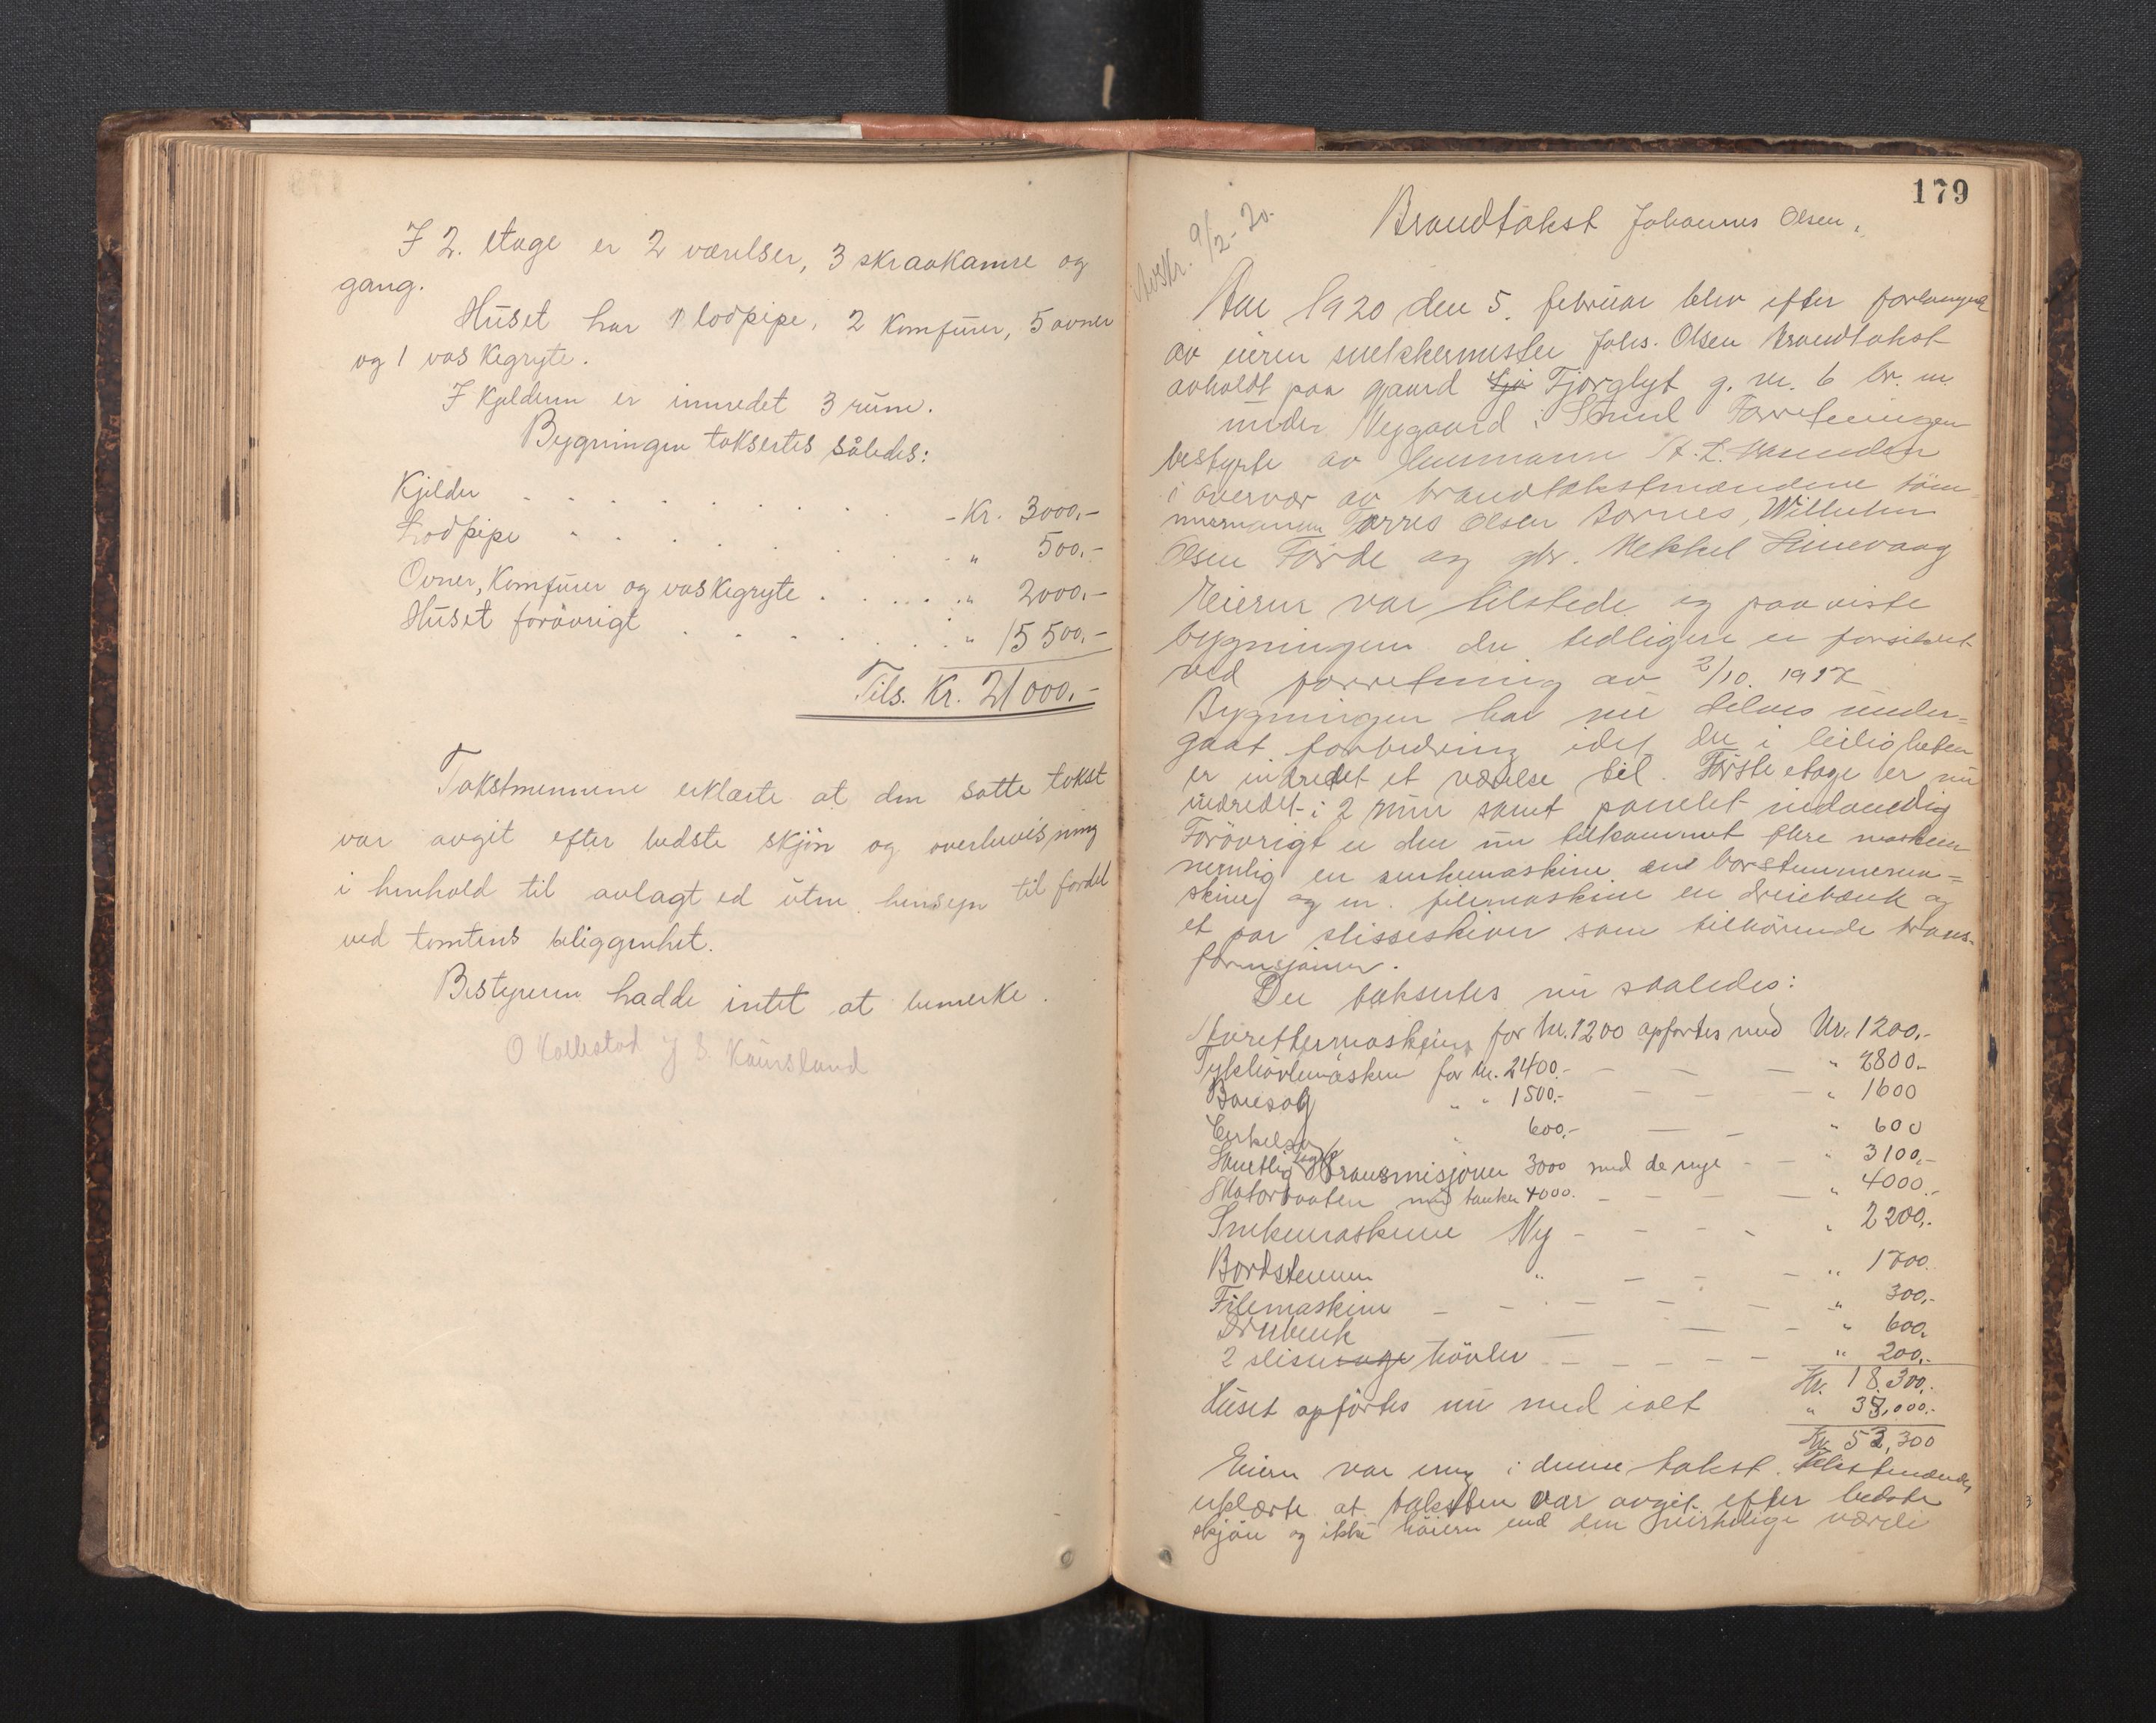 I 2. etage er 2 værelser, 3 skraakamre og
gang.
Huset har 1 lodpipe, 2 komfurer, 5 ovner
og 1 vaskegryte.
I Kjelderen er innredet 3 rum.
Bygningen taksertes således:
Kjelder - - - - - Kr. 3000,-
Lodpipe - - - - - " 500,-
Ovner, Komfurer og vaskegryte . . . . . " 2000,-
Huset forøvrigt - - - - " 15500,-
Tils. Kr. 21000,-
Takstmennene erklærte at den satte takst
var avgit efter bedste skjøn og overbevisning
i henhold til avlagt ed uten hensyn til fordel
ved tomtens beliggenhet.
Bestyreren hadde intet at bemerke.
O Kallestad J S. Kaursland
179
Avskr. 9/2-20.
Brandtakst Johannes Olsen.
Aar 1920 den 5. februar blev efter forlangende
av eieren snekkermester Johs. Olsen Brandtakst
avholdt paa gaard Fjo Fjorglyt g. nr. 6 br. nr.
under Nygaard i Strul Forretningen
bestyrte av lensmann
i overvær av brandtakstmændene töm-
mermann Torres Olsen Bornes, Wilhelm
Olsen Förde og gbr. Mekkel Limevaag
Eieren var tilstede og paaviste
bygningen der tidligere er forsikret
ved forretning av 2/10. 1917
Bygningen har nu delvis under-
gaat forbedring idet der i leiligheten
er indredet et værelse til. Förste etage er nu
indredet i 2 rum samt panelet indvendig
Forövrigt er der nu tilkommet flere maskiner
nemlig en sinkemaskine en borstemmema-
skine og en filemaskine en dreiebænk og
et par slisseskiver som tilhörende trans-
formsjoner.
Der taksertes nu saaledes:
for kr. 1200 opførtes med Kr. 1200,-
Tykhövlemaskin for kr. 2400.- — — — " 2800.-
Baresag " " 1500.- — — — " 1600
Cirkelsag " 600,- — — " 600
Samtlig lager Transmisjoner 3000 med de nye - — " 3100,-
Motor med tanker 4000. — — — — " 4000.-
Sinkemaskine Ny - — - " 2200,-
Bordstemm " — - — " 1700.
Filemaskine — - - — - — " 300,-
Dreibenk — — - " 600,
2 slissesage hövler - — - — - — " 200,-
Kr. 18.300,-
Huset opførtes nu med ialt " 35,000.-
Kr. 53,300
Eieren var enig i denne takst. Takstmændene
erklærte at taksten var avgit efter bedste
skjön og ikke höiere end den virkelige værdi